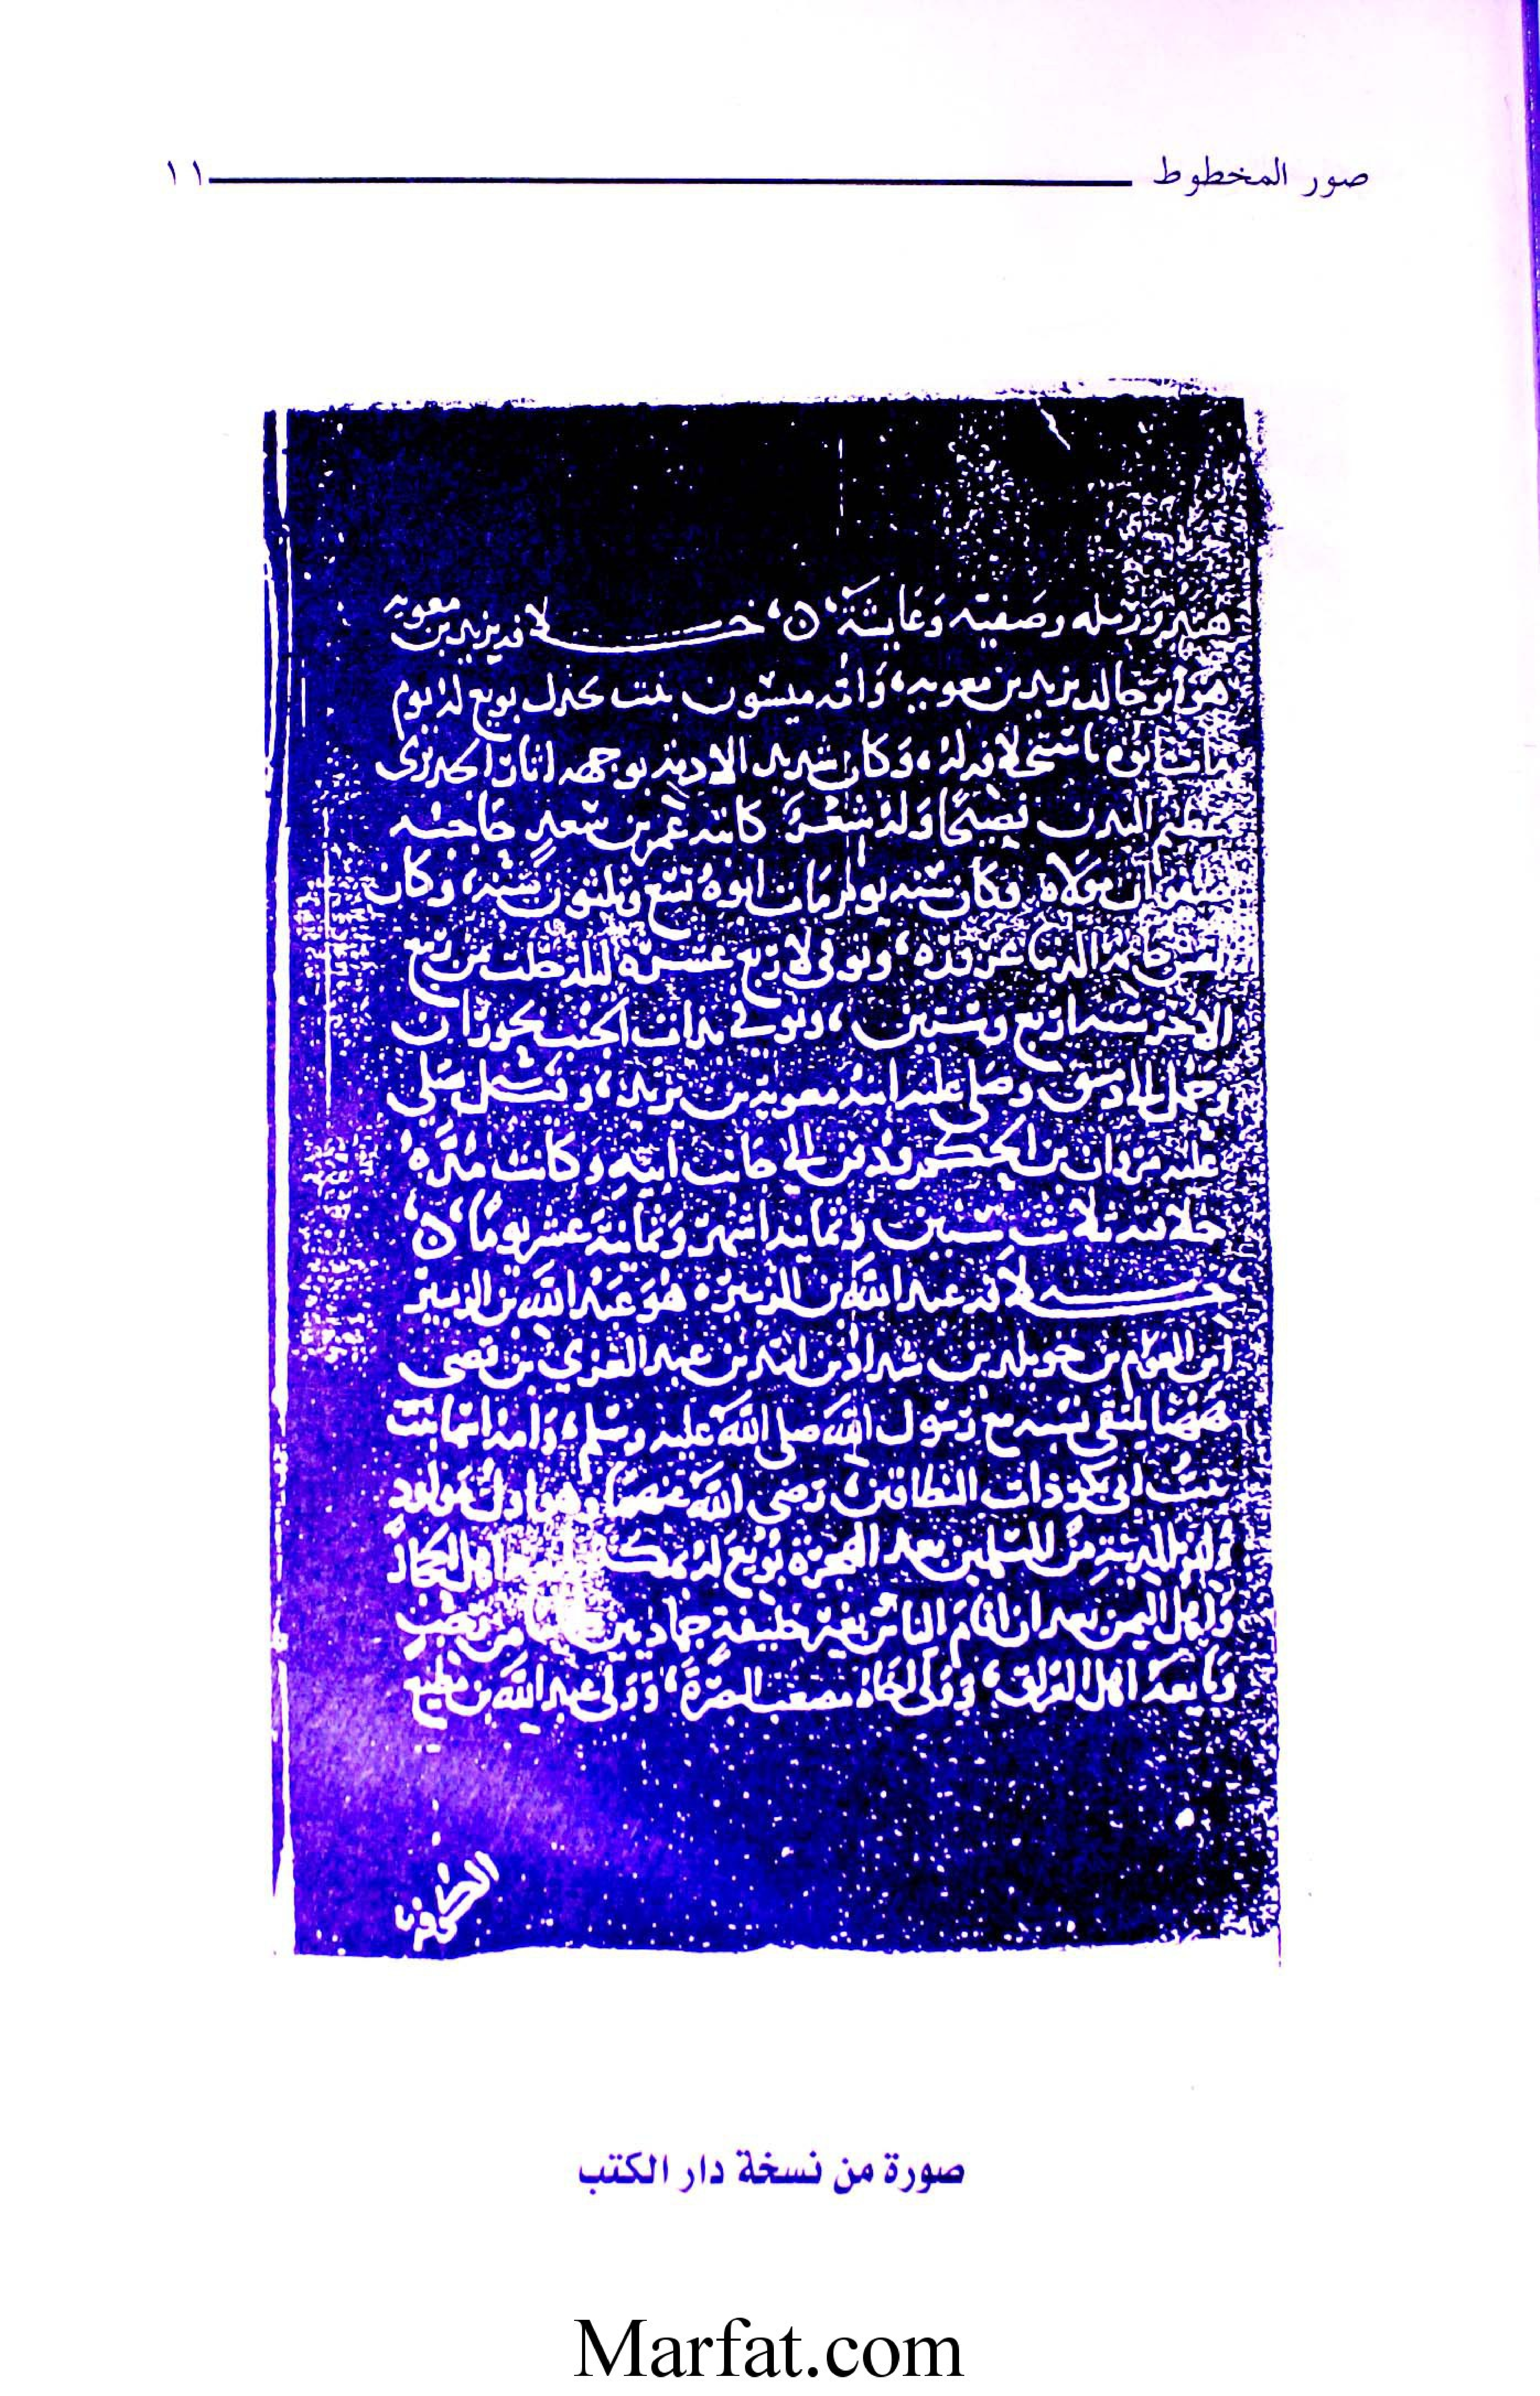 صور المخطوط ١١
هند ورمله وصفيه وعايشة خلافة يزيد بن معويه
هو ابو خالد يزيد بن معويه، وأمه ميسون بنت بحدل بويع له يوم
مات ابوه وكان شديد الادمه بوجهه اثار الجدري
عظيم البدن وله شعر كاتبه عمر بن سعد حاجبه
صفوان مولاه وكان سنه يوم مات ابوه تسع وثلثون سنه، وكان
وتوفي لاربع عشرة ليله خلت من ربيع
الاخر سنه اربع وستين، وتوفي بذات الجنب بحوران
وحمل الى دمشق وصلى عليه ابنه معوية بن يزيد، وقيل صلى
عليه مروان بن الحكم ودفن الى جانب ابيه وكانت مدة
خلافته ثلاث سنين وثمانيه اشهر وثمانية عشر يوما
خلافة عبد الله بن الزبير هو عبد الله بن الزبير
ابن العوام بن خويلد بن اسد بن عبد العزي بن قصي
ههنا يلتقي نسبه مع رسول الله صلى الله عليه وسلم، وامه اسما بنت
بنت ابي بكر ذات النطاقين رضي الله عنهما وهو اول مولود
ولد بالمدينة من المسلمين بعد الهجرة بويع له بمكة اهل الحجاز
واهل اليمن بعد ان اقام الناس بغير خليفة جمادين من رجب
وبايعه اهل العراق، وولى اخاه مصعب البصرة، وولى عبد الله بن مطيع
الكوفه
صورة من نسخة دار الكتب
Marfat.com